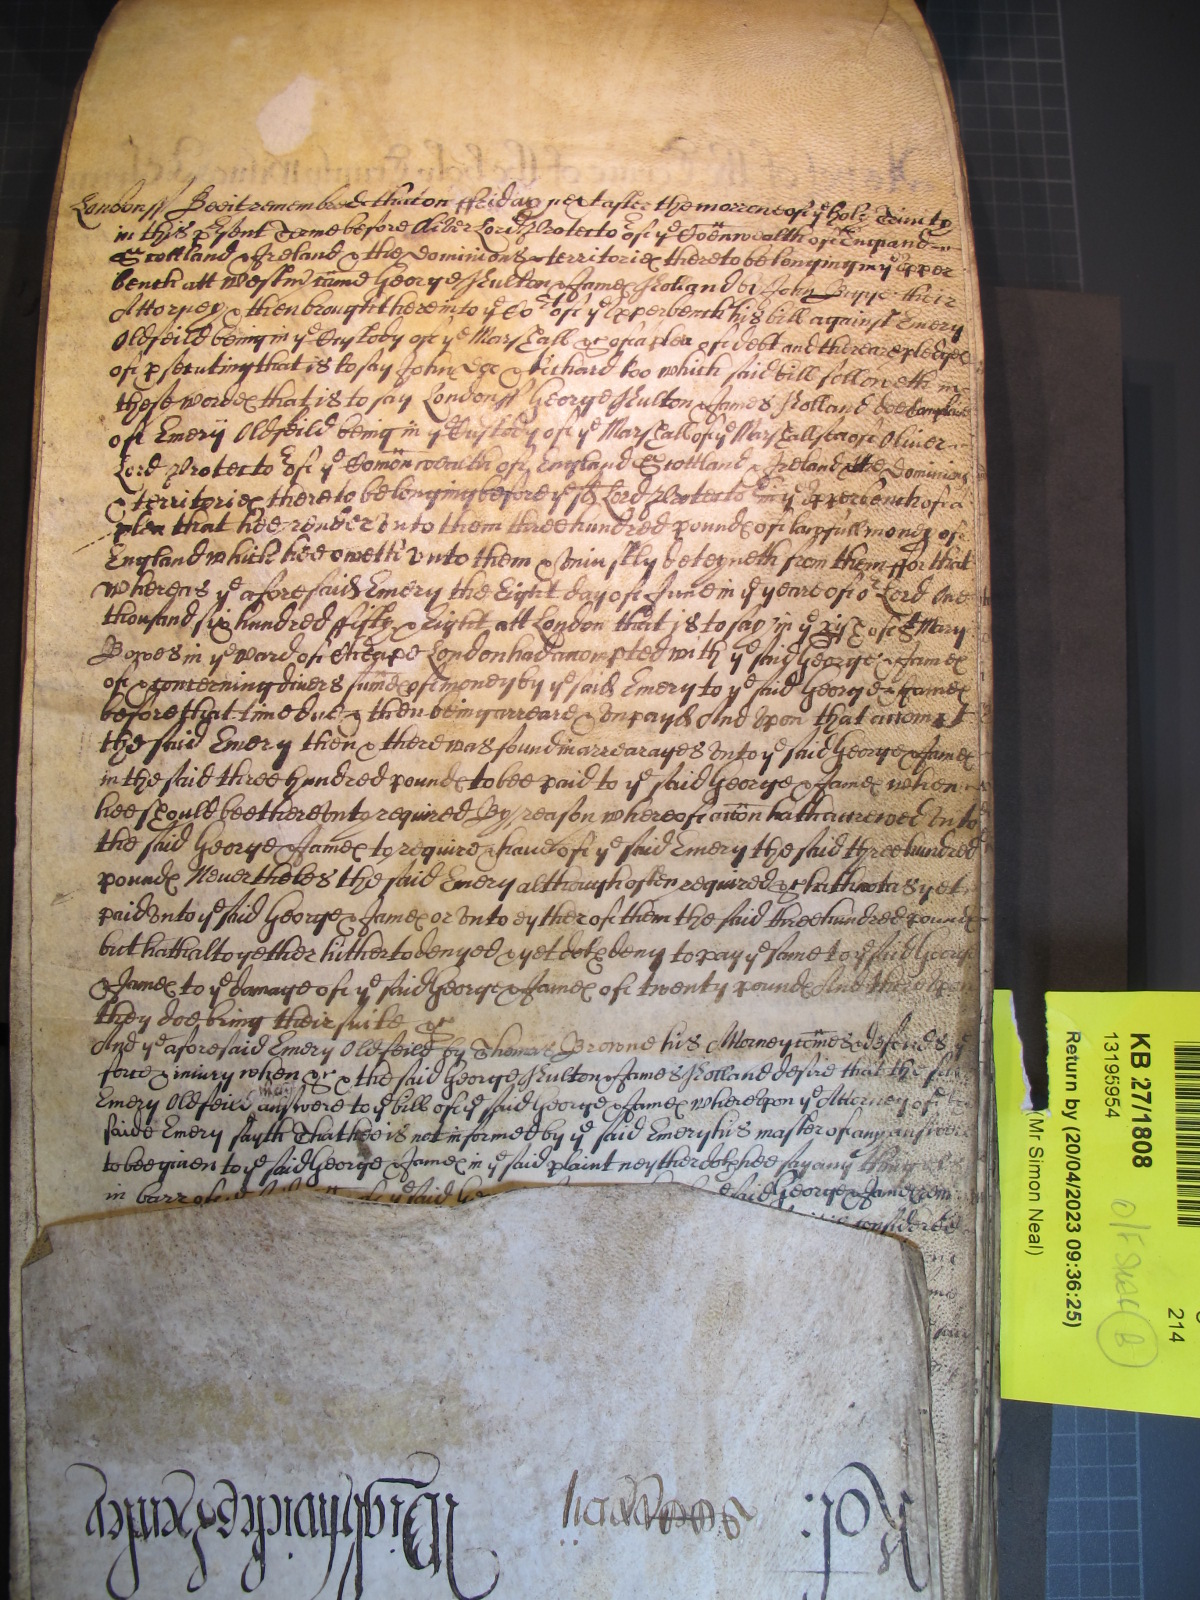 London ss Bee it remembred that on ffriday next after the morrow of ye holy Trinity
in this p̱sent Terme before Oliver Lord Protector of ye Com̄onwealth of England
Scottland & Ireland & the Dominions & territories thereto belonging in ye upper
bench att Westm̄ came George Fulton & James Holland by John Buppe their
Attorney & then brought here into ye Cort of ye upperbench his bill against Emery
Oldfeild being in ye Custody of ye Marshall &c of a plea of debt and there are pledges
of p̱secuting that is to say John Doe & Richard Roo which said bill followeth in
these wordes that is to say London ss George Fulton & James Holland doe complaine
of Emery Oldfeild being in ye Custody of ye Marshall of ye Marshallsea of Oliver
Lord Protector of ye Com̄onwealth of England Scottland & Ireland & the Dominions
& territories thereto belonging before ye sd Lord Protector in ye upperbench of a
plea that hee render unto them three hundred poundes of lawfull money of
England which hee oweth unto them & uniustly deteyneth from them ffor that
whereas ye aforesaid Emery the Eight day of June in ye yeare of or Lord One
thousand six hundred fifty & Eight att London that is to say in ye p̱ish of St Mary
Bowes in ye ward of Cheape London had accompted with ye said George & James
of & concerning divers sum̄es of money by ye said Emery to ye said George & James
before that time due & then being arreare & unpayd And upon that accompt
the said Emery then & there was found in arrearages unto ye said George & James
in the said three hundred poundes to bee paid to ye said George & James when
hee should bee thereunto required By reason whereof acc̄on hath accrewed unto
the said George & James to require & have of ye said Emery the said three hundred
poundes Neverthelesse the said Emery although often required &c hath not as yet
paid unto ye said George & James or unto eyther of them the said three hundred poundes
but hath altogether hitherto denyed & yet doth deny to pay ye same to ye said George
& James to ye damage of ye said George & James of twenty poundes And thereupon
they doe bring their suite &c
And ye aforesaid Emery Oldfeild by Thomas Browne his Attorney comes & defends ye
force & iniury when &c & the said George Fulton & James Holland desire that the sd
Emery Oldfeild may answere to ye bill of ye said George & James whereupon ye Attorney of ye
saide Emery sayth That hee is not informed by ye said Emery his master of any answere
to bee given to ye said George & James in ye said plaint neyther doth hee say any thing
in barr of ye said George & James
considered
Warfwicke & Henley
Rol:
KB 27/1808
13195954
Return by (20/04/2023 09:36:25)
(Mr Simon Neal)
214